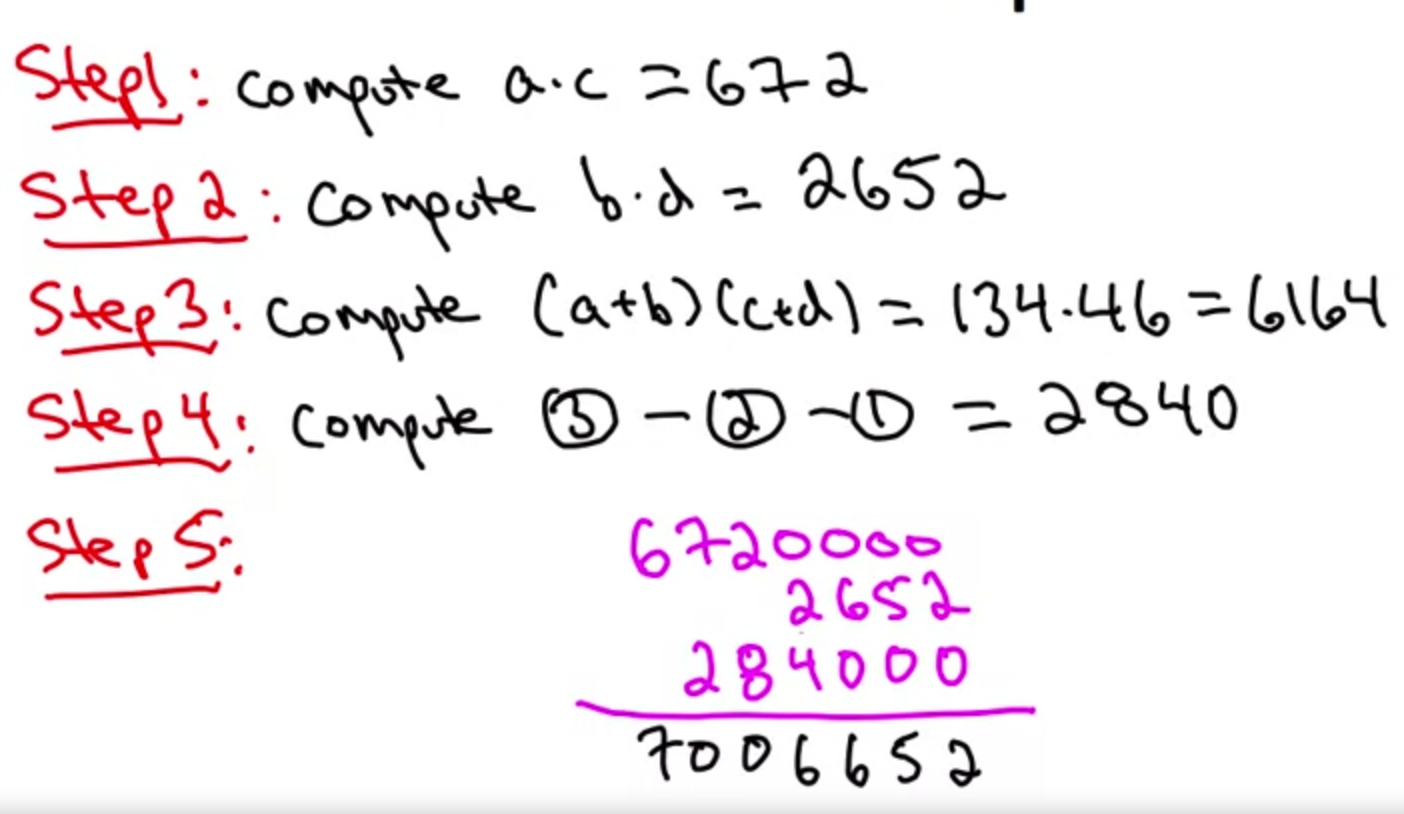 Step1: compute a.c = 672
Step 2: compute b.d = 2652
Step 3: compute (a+b)(c+d) = 134.46 = 6164
Step 4: compute ③ - ② - ① = 2840
Step 5:
6720000
2652
284000
7006652